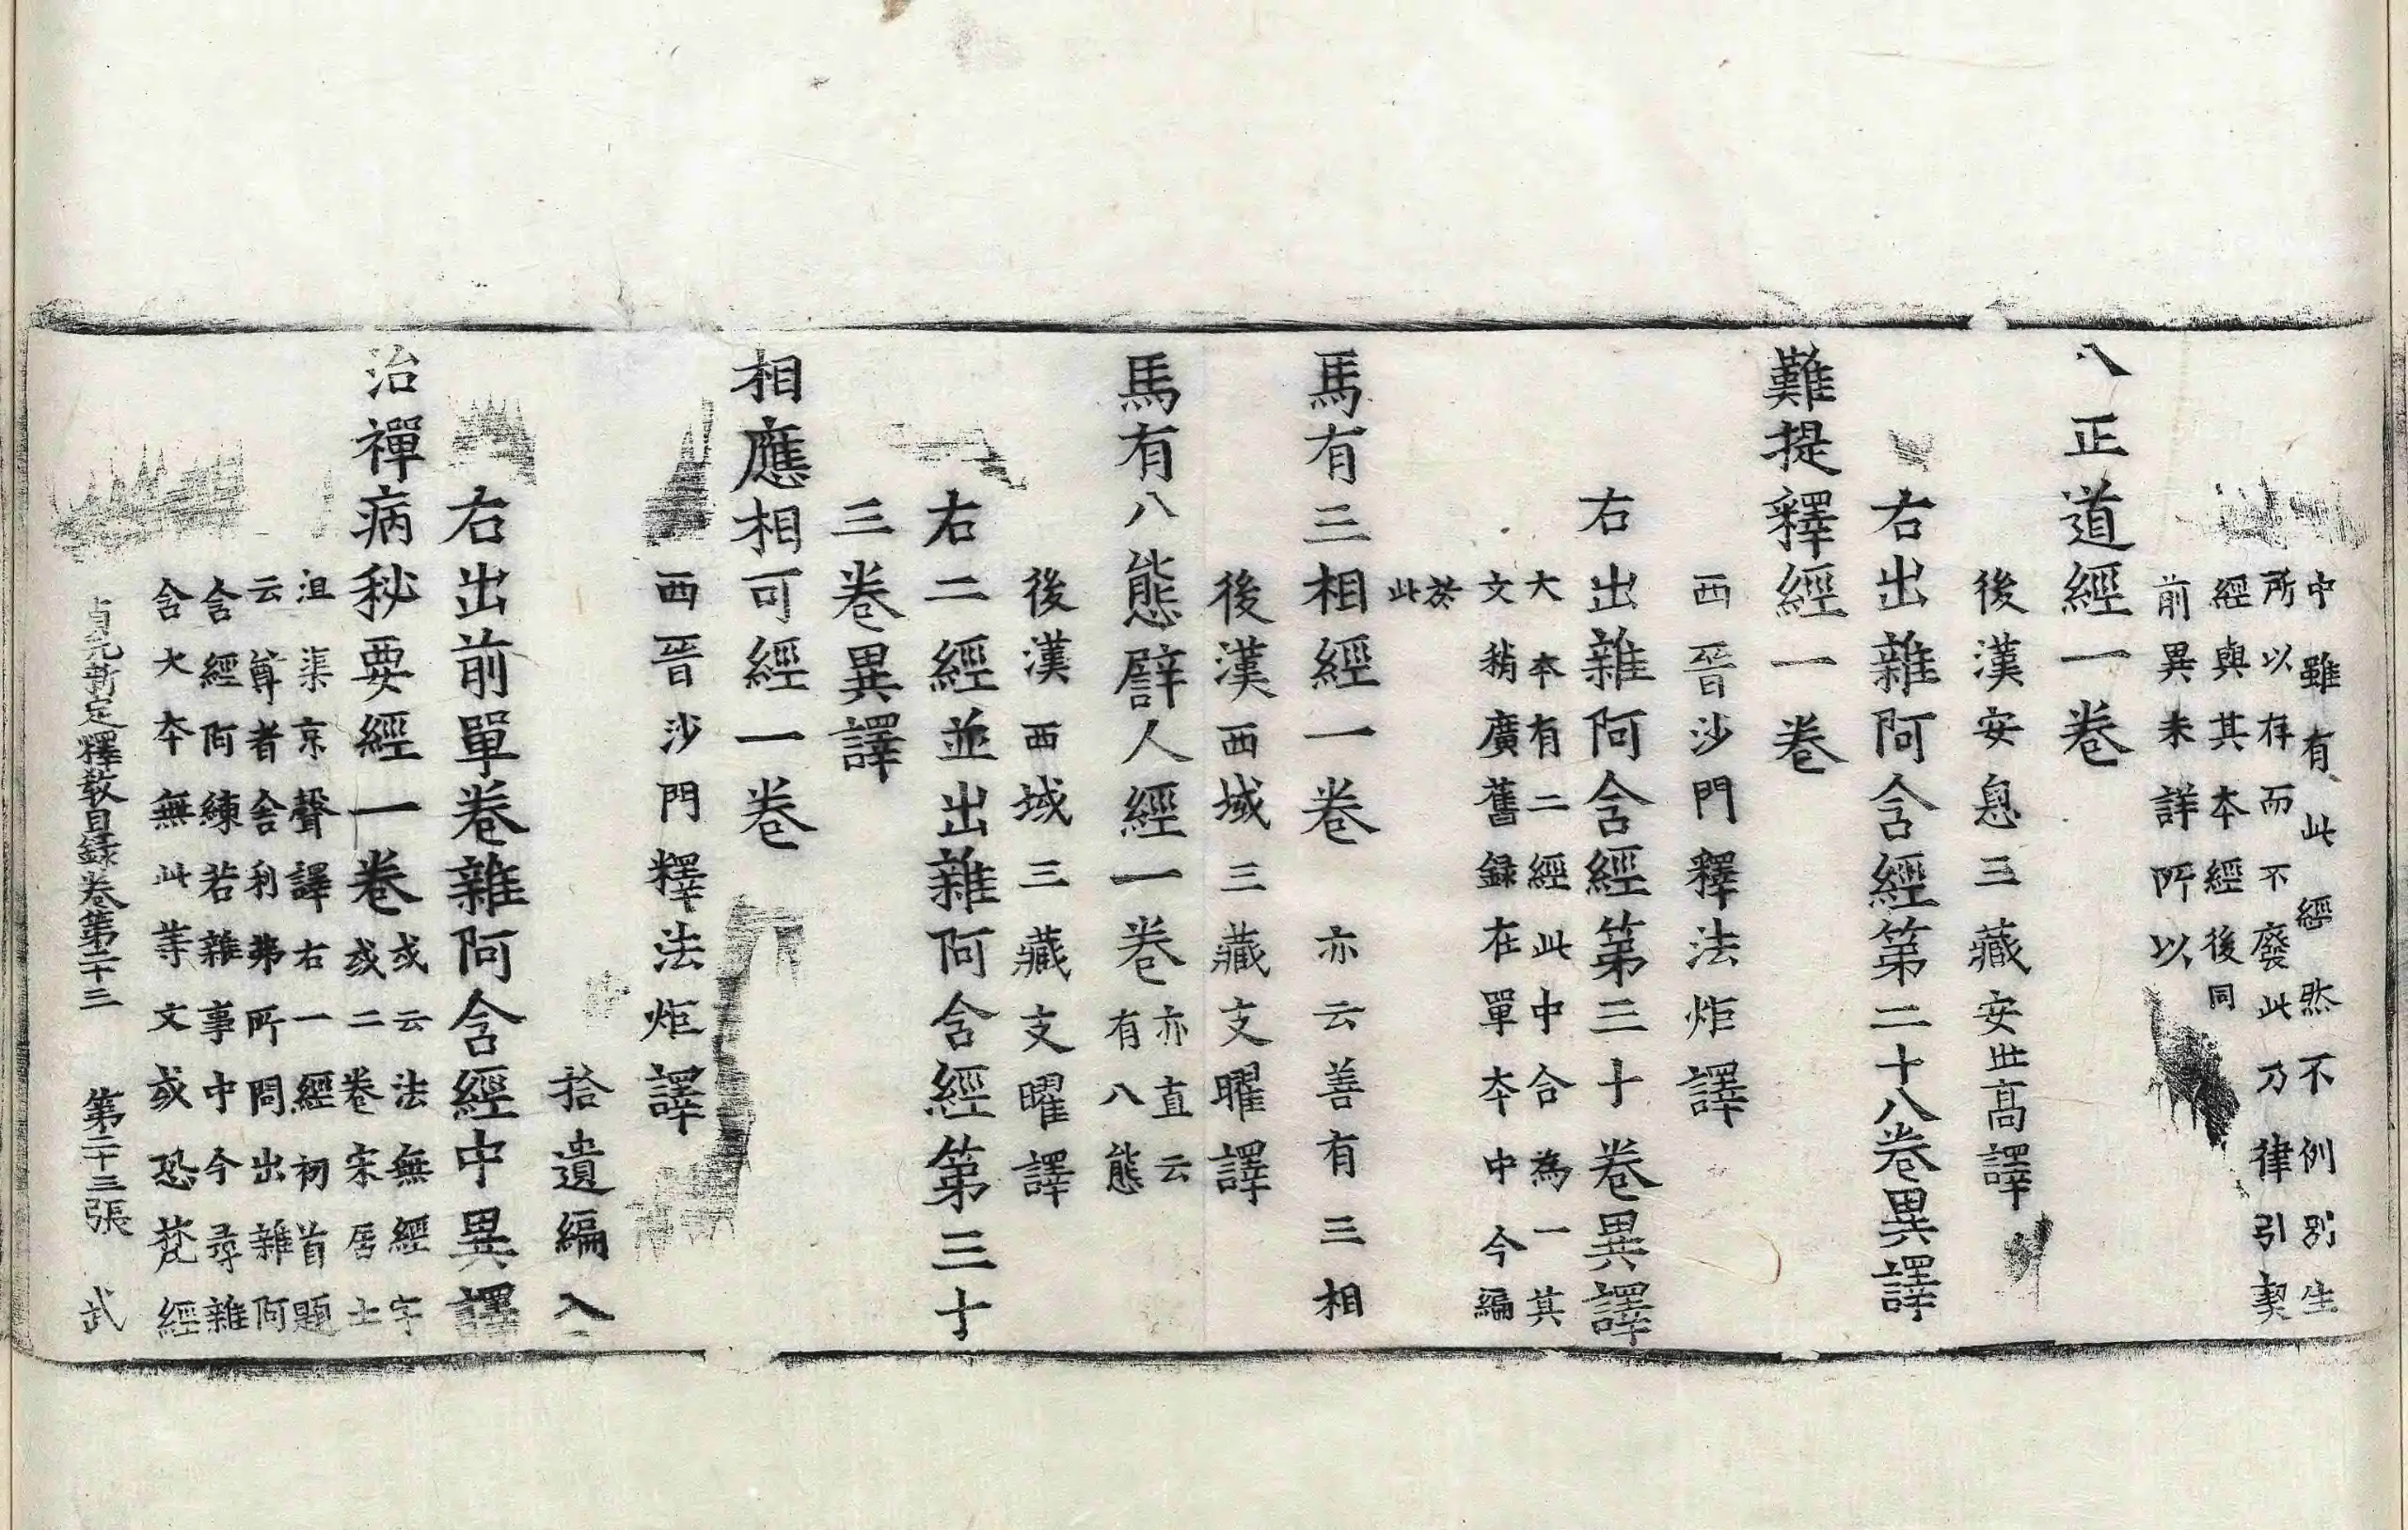 中雖有此經然不例別生
所以存而不廢此乃律引契
經與其本經後同
前異未詳所以
八正道經一卷
後漢安息三藏安世高譯
右出雜阿含經第二十八卷異譯
難提釋經一卷
西晉沙門釋法炬譯
右出雜阿含經第三十卷異譯
大本有二經此中合為一其
文稍廣舊録在單本中今編
於
此
馬有三相經一卷 亦云善有三相
後漢西域三藏支曜譯
馬有八態譬人經一卷
亦直云
有八態
後漢西域三藏支曜譯
右二經並出雜阿含經第三十
三卷異譯
相應相可經一卷
西晉沙門釋法炬譯
拾遺編入
右出前單卷雜阿含經中異譯
治禪病秘要經一卷
或云法無經字
或二卷宋居士
沮渠京聲譯右一經初首題
云尊者舍利弗所問出雜阿
含經阿練若雜事中今尋雜
含大本無此等文或恐梵經
貞元新定釋教目録卷第二十三 第二十三張 武